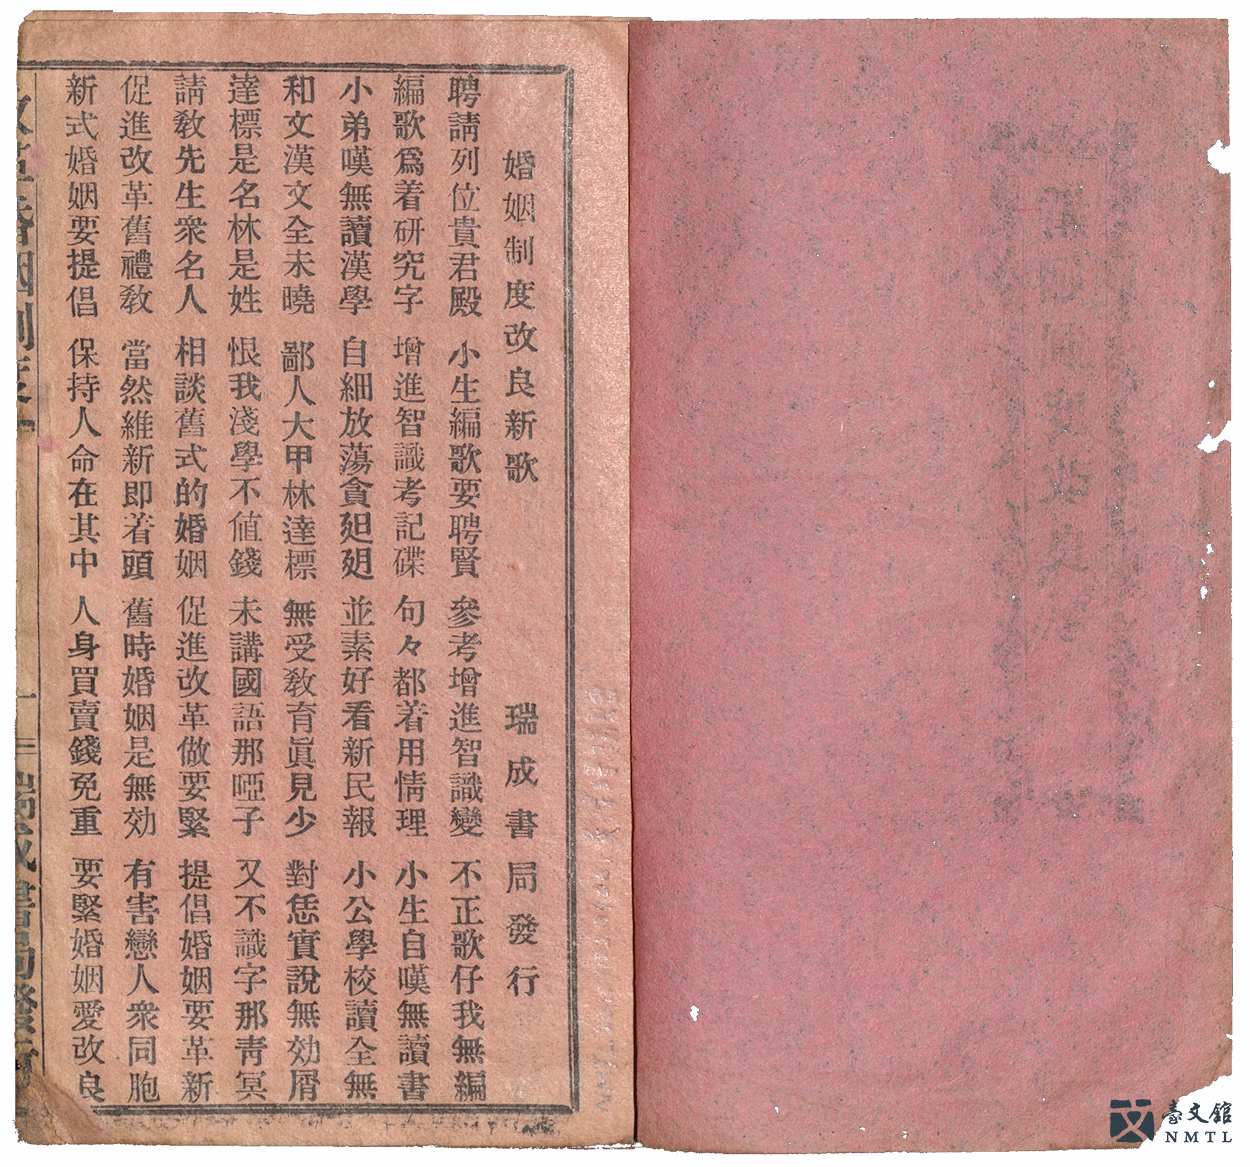 婚姻制度改良新歌 瑞成書局發行
聘請列位貴君殿 小生編歌要聘賢 參考增進智識變 不正歌仔我無編
編歌爲着研究字 增進智識考記碟 句々都着用情理 小生自嘆無讀書
小弟嘆無讀漢學 自細放蕩貪廻廻 並素好看新民報 小公學校讀全無
和文漢文全未曉 鄙人大甲林達標 無受敎育眞見少 對恁實說無効屑
達標是名林是姓 恨我淺學不値錢 未講國語那啞子 又不識字那靑冥
請敎先生衆名人 相談舊式的婚姻 促進改革做要緊 提倡婚姻要革新
促進改革舊禮敎 當然維新即着頭 舊時婚姻是無効 有害戀人衆同胞
新式婚姻要提倡 保持人命在其中 人身買賣錢免重 要緊婚姻愛改良
婚姻制度 一 瑞成書局發行
臺文館
NMTL